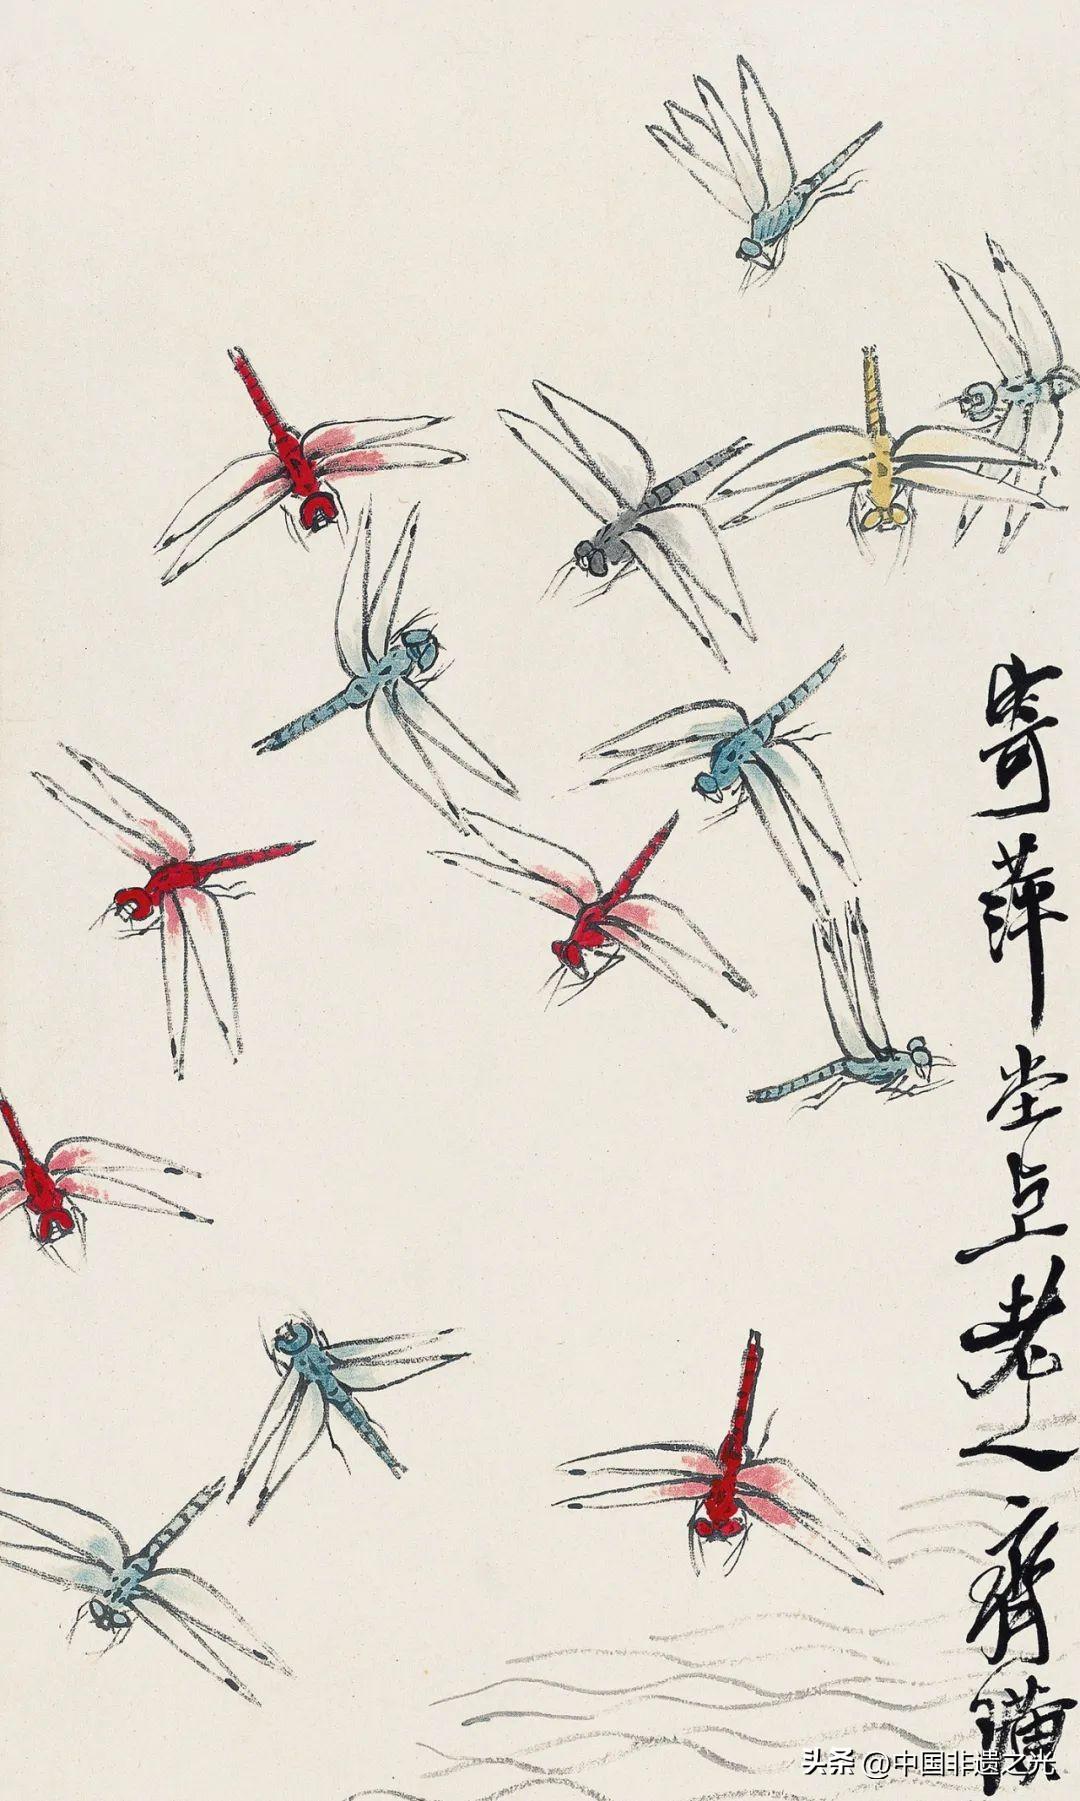 寄萍堂上老人齊璜
头条 @中国非遗之光